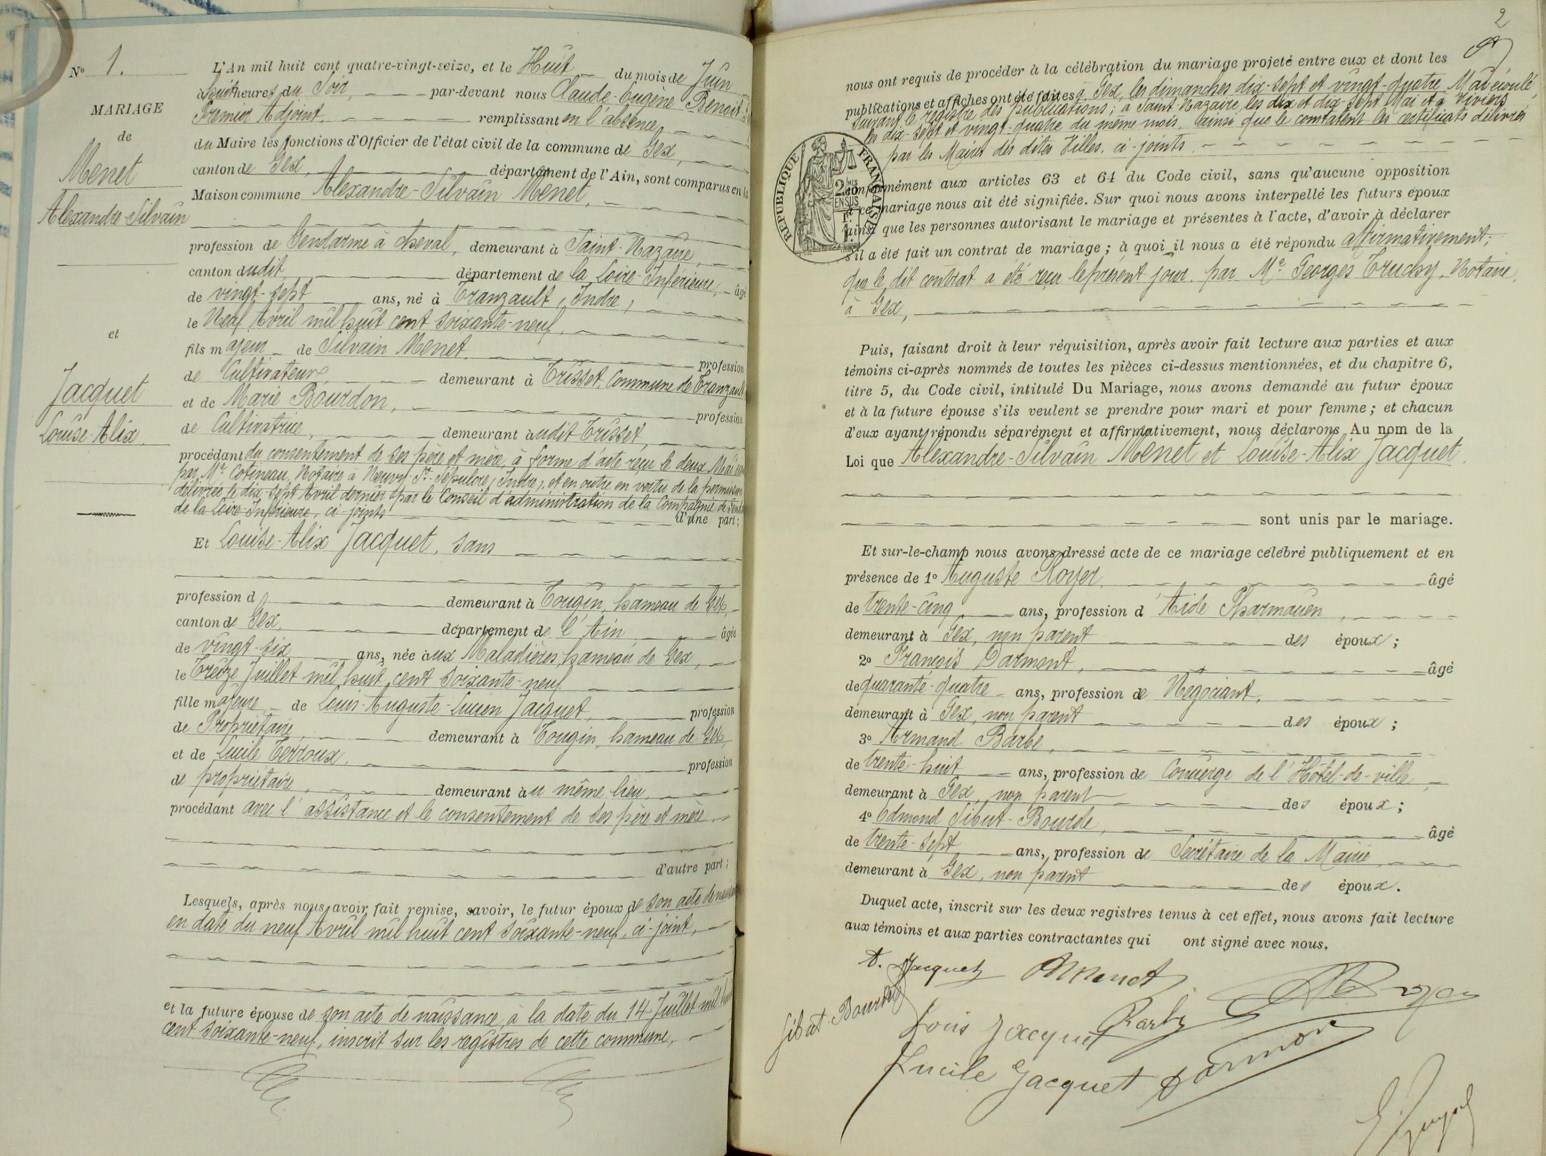 N° 1.
MARIAGE
de
Menet
Alexandre-Silvain
et
Jacquet
Louise Alix.
L'An mil huit cent quatre-vingt-seize, et le Huit du mois de Juin
à heures du Soir, par-devant nous Claude-Eugène Benoit
Premier Adjoint remplissant en l'absence
du Maire les fonctions d'Officier de l'état civil de la commune de Gex,
canton de Gex, département de l'Ain, sont comparus en la
Maison commune Alexandre-Silvain Menet,
profession de Gendarme à cheval, demeurant à Saint-Nazaire,
canton dudit département de la Loire-Inférieure, âgé
de vingt-sept ans, né à Tranzault, Indre,
le Neuf Avril mil huit cent soixante-neuf,
fils majeur de Silvain Menet profession
de Cultivateur demeurant à Trisset, Commune de Tranzault
et de Marie Bourdon, profession
de Cultivatrice, demeurant audit Trisset,
procédant du consentement de ses père et mère, à forme d'acte reçu le deux Mai
par Me Cotineau, Notaire à Neuvy-St-Sépulcre, (Indre), et en outre en vertu de la permission
délivrée le dix-sept Avril dernier par le Conseil d'administration de la Compagnie de
de la Loire-Inférieure, ci-joints d'une part;
Et Louise-Alix Jacquet, sans
profession d demeurant à Tougin, hameau de Gex,
canton de Gex département de l'Ain âgée
de vingt-six ans, née aux Maladières hameau de Gex,
le Treize Juillet mil huit cent soixante-neuf
fille majeure de Louis-Auguste-Lucien Jacquet, profession
de Propriétaire demeurant à Tougin, hameau de Gex,
et de Lucile Verdoux, profession
de propriétaire, demeurant au même lieu,
procédant avec l'assistance et le consentement de ses père et mère
d'autre part;
Lesquels, après nous avoir fait remise, savoir, le futur époux de son acte de naissance
en date du neuf Avril mil huit cent soixante-neuf, ci-joint,
et la future épouse de son acte de naissance, à la date du 14 Juillet mil huit
cent soixante-neuf, inscrit sur les registres de cette commune,
2
nous ont requis de procéder à la célébration du mariage projeté entre eux et dont les
publications et affiches ont été faites à Gex, les dimanches dix-sept et vingt-quatre Mai écoulé
suivant le registre des publications; à Saint-Nazaire, les dix et dix-sept Mai et à
les dix-sept et vingt-quatre du même mois, ainsi que le constatent les certificats délivrés
par les Maires des dites Villes, ci-joints.
RÉPUBLIQUE FRANÇAISE
conformément aux articles 63 et 64 du Code civil, sans qu'aucune opposition
mariage nous ait été signifiée. Sur quoi nous avons interpellé les futurs époux
ainsi que les personnes autorisant le mariage et présentes à l'acte, d'avoir à déclarer
s'il a été fait un contrat de mariage; à quoi il nous a été répondu affirmativement;
que le dit contrat a été reçu le présent jour par Me Georges Truchy, Notaire,
à Gex,
Puis, faisant droit à leur réquisition, après avoir fait lecture aux parties et aux
témoins ci-après nommés de toutes les pièces ci-dessus mentionnées, et du chapitre 6,
titre 5, du Code civil, intitulé Du Mariage, nous avons demandé au futur époux
et à la future épouse s'ils veulent se prendre pour mari et pour femme; et chacun
d'eux ayant répondu séparément et affirmativement, nous déclarons Au nom de la
Loi que Alexandre-Silvain Menet et Louise-Alix Jacquet
sont unis par le mariage.
Et sur-le-champ nous avons dressé acte de ce mariage célébré publiquement et en
présence de 1° Auguste Royer, âgé
de trente-cinq ans, profession d'Aide Pharmacien,
demeurant à Gex, non parent des époux;
2° François Darmont, âgé
de quarante-quatre ans, profession de Négociant,
demeurant à Gex, non parent des époux;
3° Armand Barbe,
de trente-huit ans, profession de Concierge de l'Hôtel-de-ville,
demeurant à Gex, non parent des époux;
4° Edmond Sibut-Bourde, âgé
de trente-sept ans, profession de Secrétaire de la Mairie
demeurant à Gex, non parent des époux.
Duquel acte, inscrit sur les deux registres tenus à cet effet, nous avons fait lecture
aux témoins et aux parties contractantes qui ont signé avec nous.
A. Jacquet Menet Royer
Sibut Bourde
Louis Jacquet Barbe
Lucile Jacquet Darmont